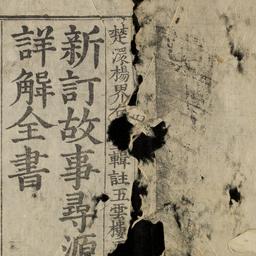 楚 楊界 輯註五雲樓
新訂故事尋源
詳解全書